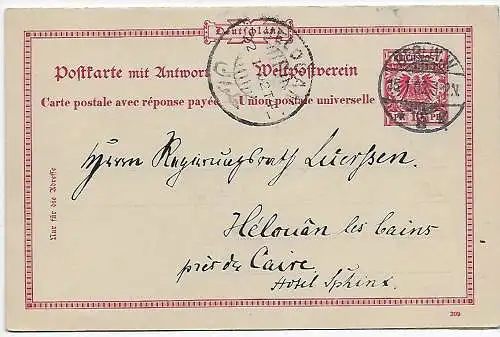 Deutschland
Postkarte mit Antwort Weltpostverein
Carte postale avec réponse payée Union postale universelle
BERLIN W
10 PF
Nur für die Adresse
Herrn Regierungsrath Luerssen
Hélouân les bains
près du Caire
Hotel Sphinx
209